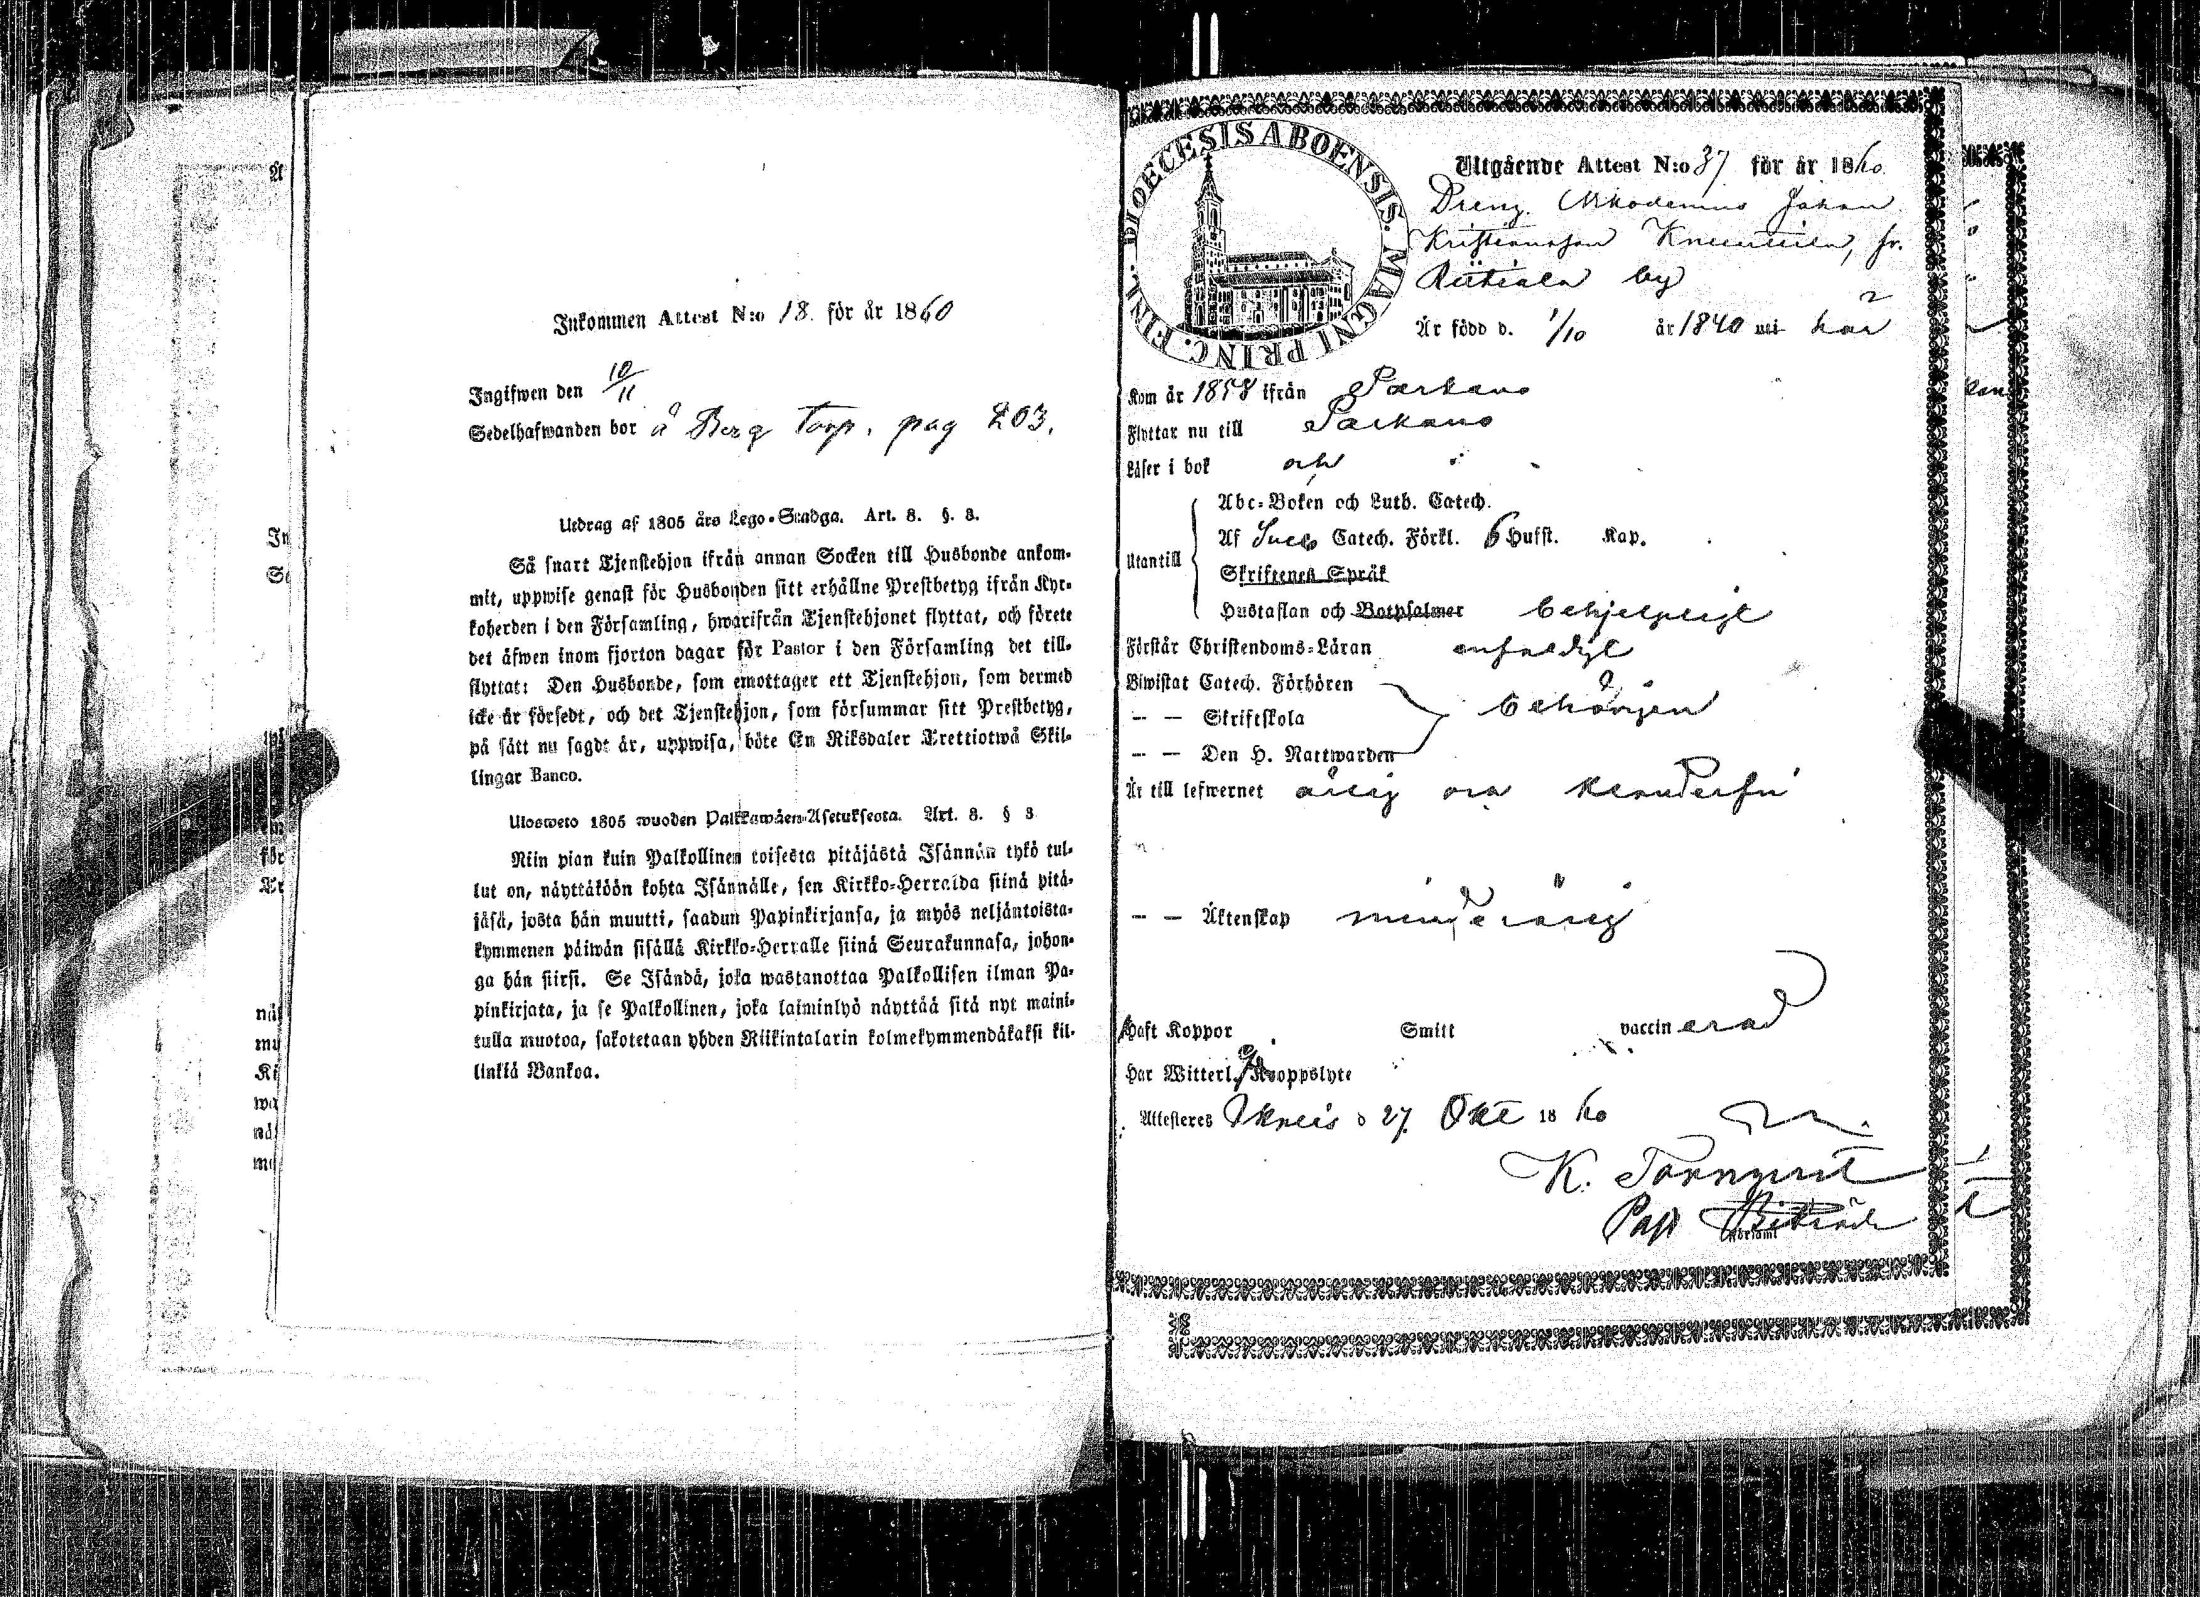 Inkommen Attest N:o 18. för år 1860
Ingifwen den 10/11
Sedelhafwanden bor å Berg torp. pag 203.
Utdrag af 1805 års Lego-Stadga. Art. 8. §. 8.
Så snart Tjenstehjon ifrån annan Socken till Husbonde ankom-
mit, uppwise genast för Husbonden sitt erhållne Prestbetyg ifrån Kyr-
koherden i den Församling, hwarifrån Tjenstehjonet flyttat, och förete
det äfwen inom fjorton dagar för Pastor i den Församling det till-
flyttat: Den Husbonde, som emottager ett Tjenstehjon, som dermed
icke är försedt, och det Tjenstehjon, som försummar sitt Prestbetyg,
på sätt nu sagdt är, uppwisa, böte En Riksdaler Trettiotwå Skil-
lingar Banco.
Ulosweto 1805 wuoden Palkkawäen-Asetuksesta. Art. 8. § 8
Niin pian kuin Palkollinen toisesta pitäjästä Isännän tykö tul-
lut on, näyttäköön kohta Isännälle, sen Kirkko-Herralda siinä pitä-
jäsä, josta hän muutti, saadun Papinkirjansa, ja myös neljäntoista-
kymmenen päiwän sisällä Kirkko-Herralle siinä Seurakunnasa, johon-
ga hän siirsi. Se Isändä, joka wastanottaa Palkollisen ilman Pa-
pinkirjata, ja se Palkollinen, joka laiminlyö näyttää sitä nyt maini-
tulla muotoa, sakotetaan yhden Riikintalarin kolmekymmendäkaksi kil-
linkiä Bankoa.
DIOECESIS ABOENSIS. MAGNI PRINC. FINL.
Utgående Attest N:o 37 för år 1860
Dreng. Nikodemus Johan
Kristiansson fr.
by
Är född d. 1/10 år 1840 uti här
Kom år 1858 ifrån Parkano
Flyttar nu till Parkano
Läser i bok
Abc-Boken och Luth. Catech.
Utantill
Af Svebs Catech. Förkl. 6 Hufst. Kap.
Skriftenes Språk
Hustaflan och Botpsalmer behjelpligt
Förstår Christendoms-Läran enfaldigt
Biwistat Catech. Förhören
— — Skriftskola behörigen
— — Den H. Nattwarden
Är till lefwernet ärlig och klanderfri
— — Äktenskap minderårig
Haft Koppor Smitt vaccinerad
Har Witterl. Kroppslyte
Attesteras Ikalis d 27 Okt 1860
K. Törnqvist
Past Biträde